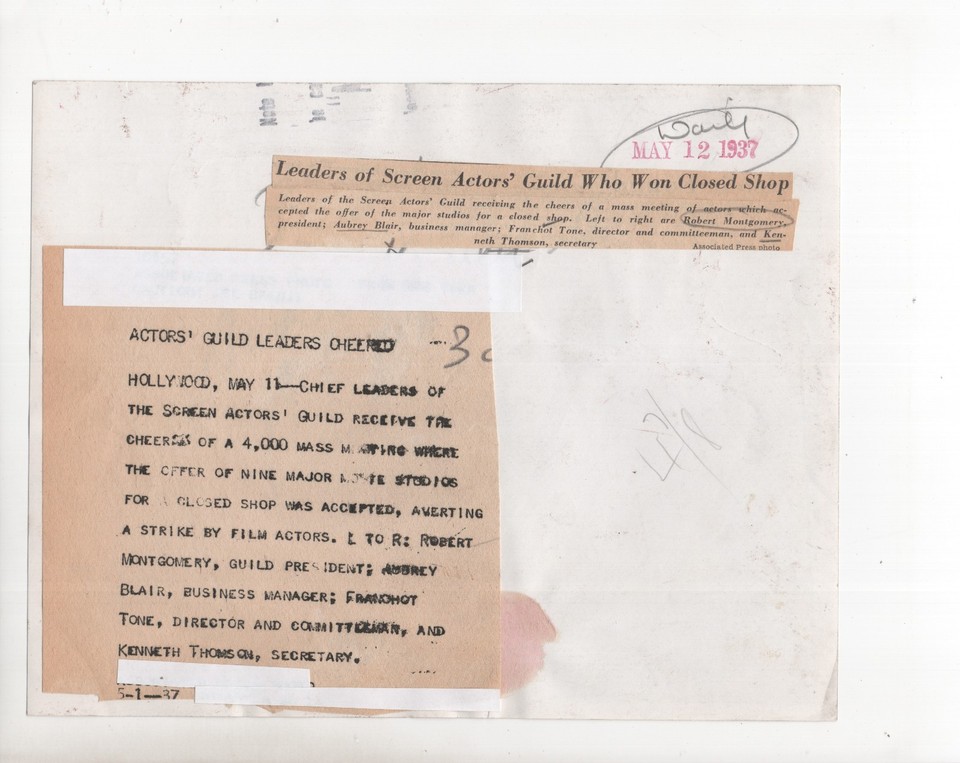 Daily
MAY 12 1937
Leaders of Screen Actors' Guild Who Won Closed Shop
Leaders of the Screen Actors' Guild receiving the cheers of a mass meeting of actors which ac-
cepted the offer of the major studios for a closed shop. Left to right are Robert Montgomery,
president; Aubrey Blair, business manager; Franchot Tone, director and committeeman, and Ken-
neth Thomson, secretary
Associated Press photo
ACTORS' GUILD LEADERS CHEERED
HOLLYWOOD, MAY 11—CHIEF LEADERS OF
THE SCREEN ACTORS' GUILD RECEIVE THE
CHEERS OF A 4,000 MASS MEETING WHERE
THE OFFER OF NINE MAJOR MOVIE STUDIOS
FOR A CLOSED SHOP WAS ACCEPTED, AVERTING
A STRIKE BY FILM ACTORS. L TO R: ROBERT
MONTGOMERY, GUILD PRESIDENT; AUBREY
BLAIR, BUSINESS MANAGER; FRANCHOT
TONE, DIRECTOR AND COMMITTEEMAN, AND
KENNETH THOMSON, SECRETARY.
5-1—37